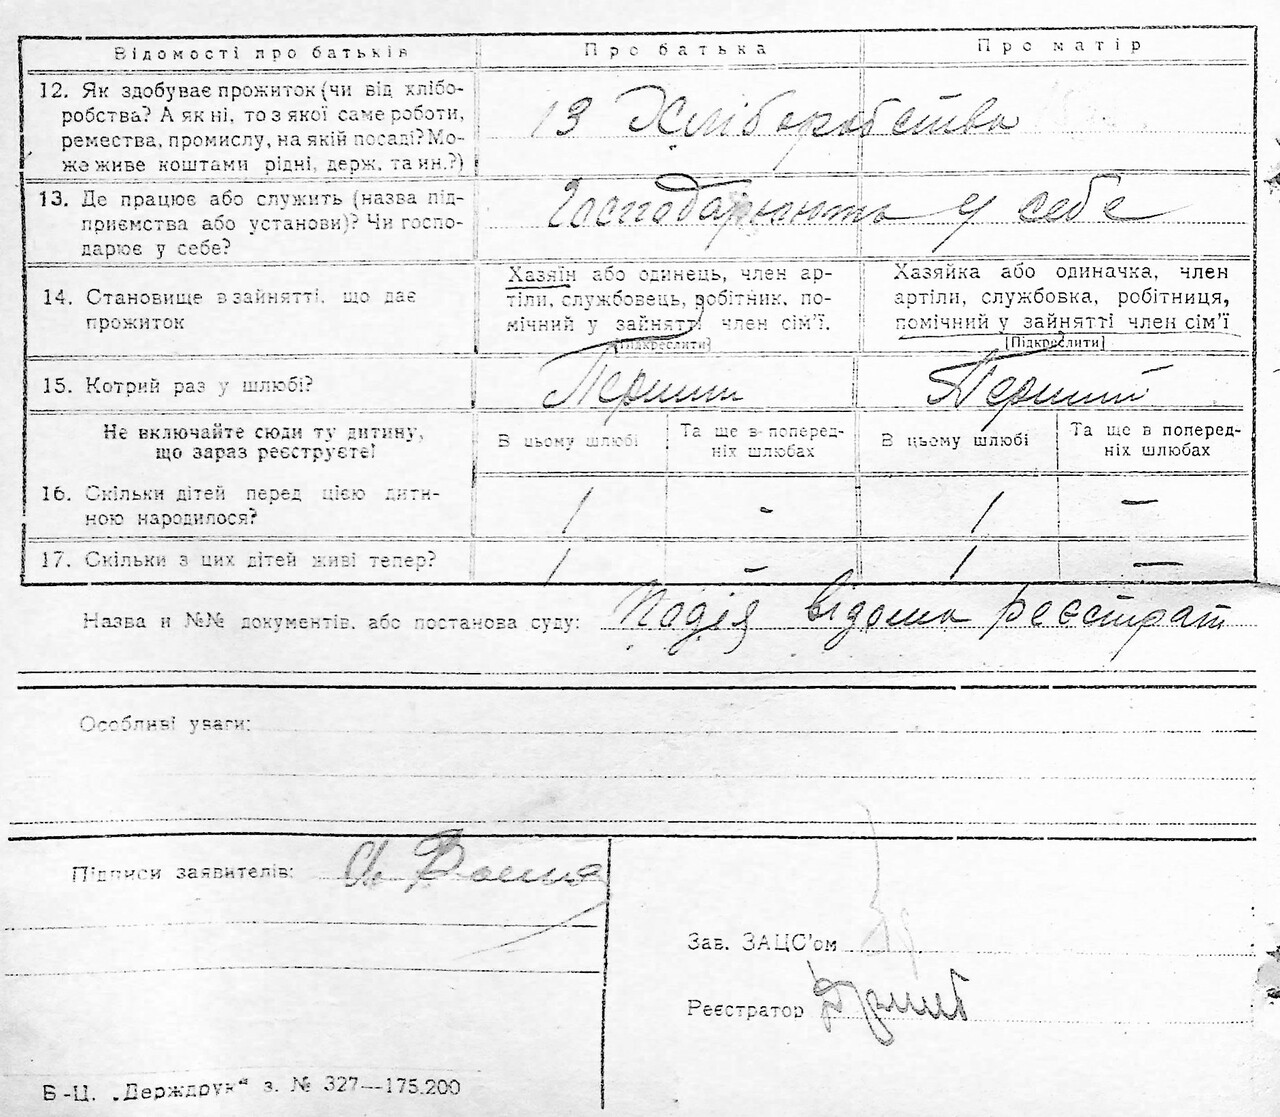 Відомості про батьків Про батька Про матір
12. Як здобуває прожиток (чи від хлібо-
робства? А як ні, то з якої саме роботи,
ремества, промислу, на якій посаді? Мо-
же живе коштами рідні, держ. та ин.?)
Із Хліборобства
13. Де працює або служить (назва під-
приємства або установи)? Чи госпо-
дарює у себе?
Господарюють у себе
14. Становище в зайнятті, що дає
прожиток
Хазяїн або одинець, член ар-
тіли, службовець, робітник, по-
мічний у зайнятті член сім'ї.
[Підкреслити]
Хазяйка або одиначка, член
артіли, службовка, робітниця,
помічний у зайнятті член сім'ї
[Підкреслити]
15. Котрий раз у шлюбі? Перший Перший
Не включайте сюди ту дитину,
що зараз реєструєте!
В цьому шлюбі
Та ще в поперед-
ніх шлюбах
В цьому шлюбі
Та ще в поперед-
ніх шлюбах
16. Скільки дітей перед цією дити-
ною народилося?
1 - 1 -
17. Скільки з цих дітей живі тепер? 1 - 1 -
Назва и №№ документів, або постанова суду: Подія відома реєстрат
Особливі уваги:
Підписи заявителів:
Зав. ЗАЦС'ом
Реєстратор
Б-Ц. „Держдрук“ з. № 327—175.200